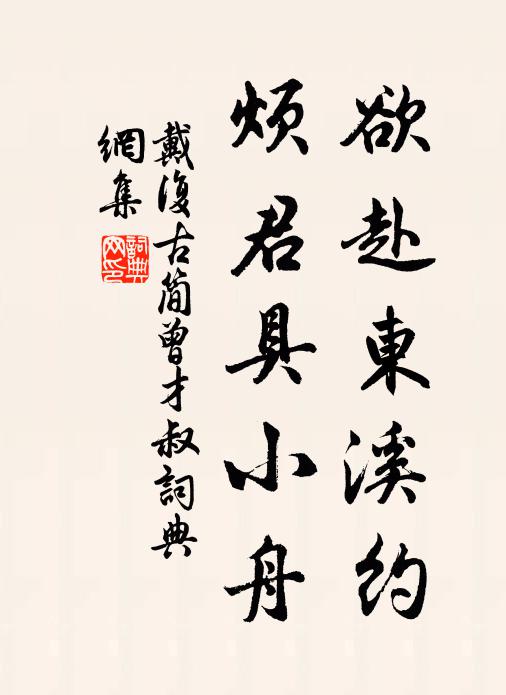 欲赴東溪約
煩君具小舟
戴復古簡曾才叔詞典
網集
詞典
网印